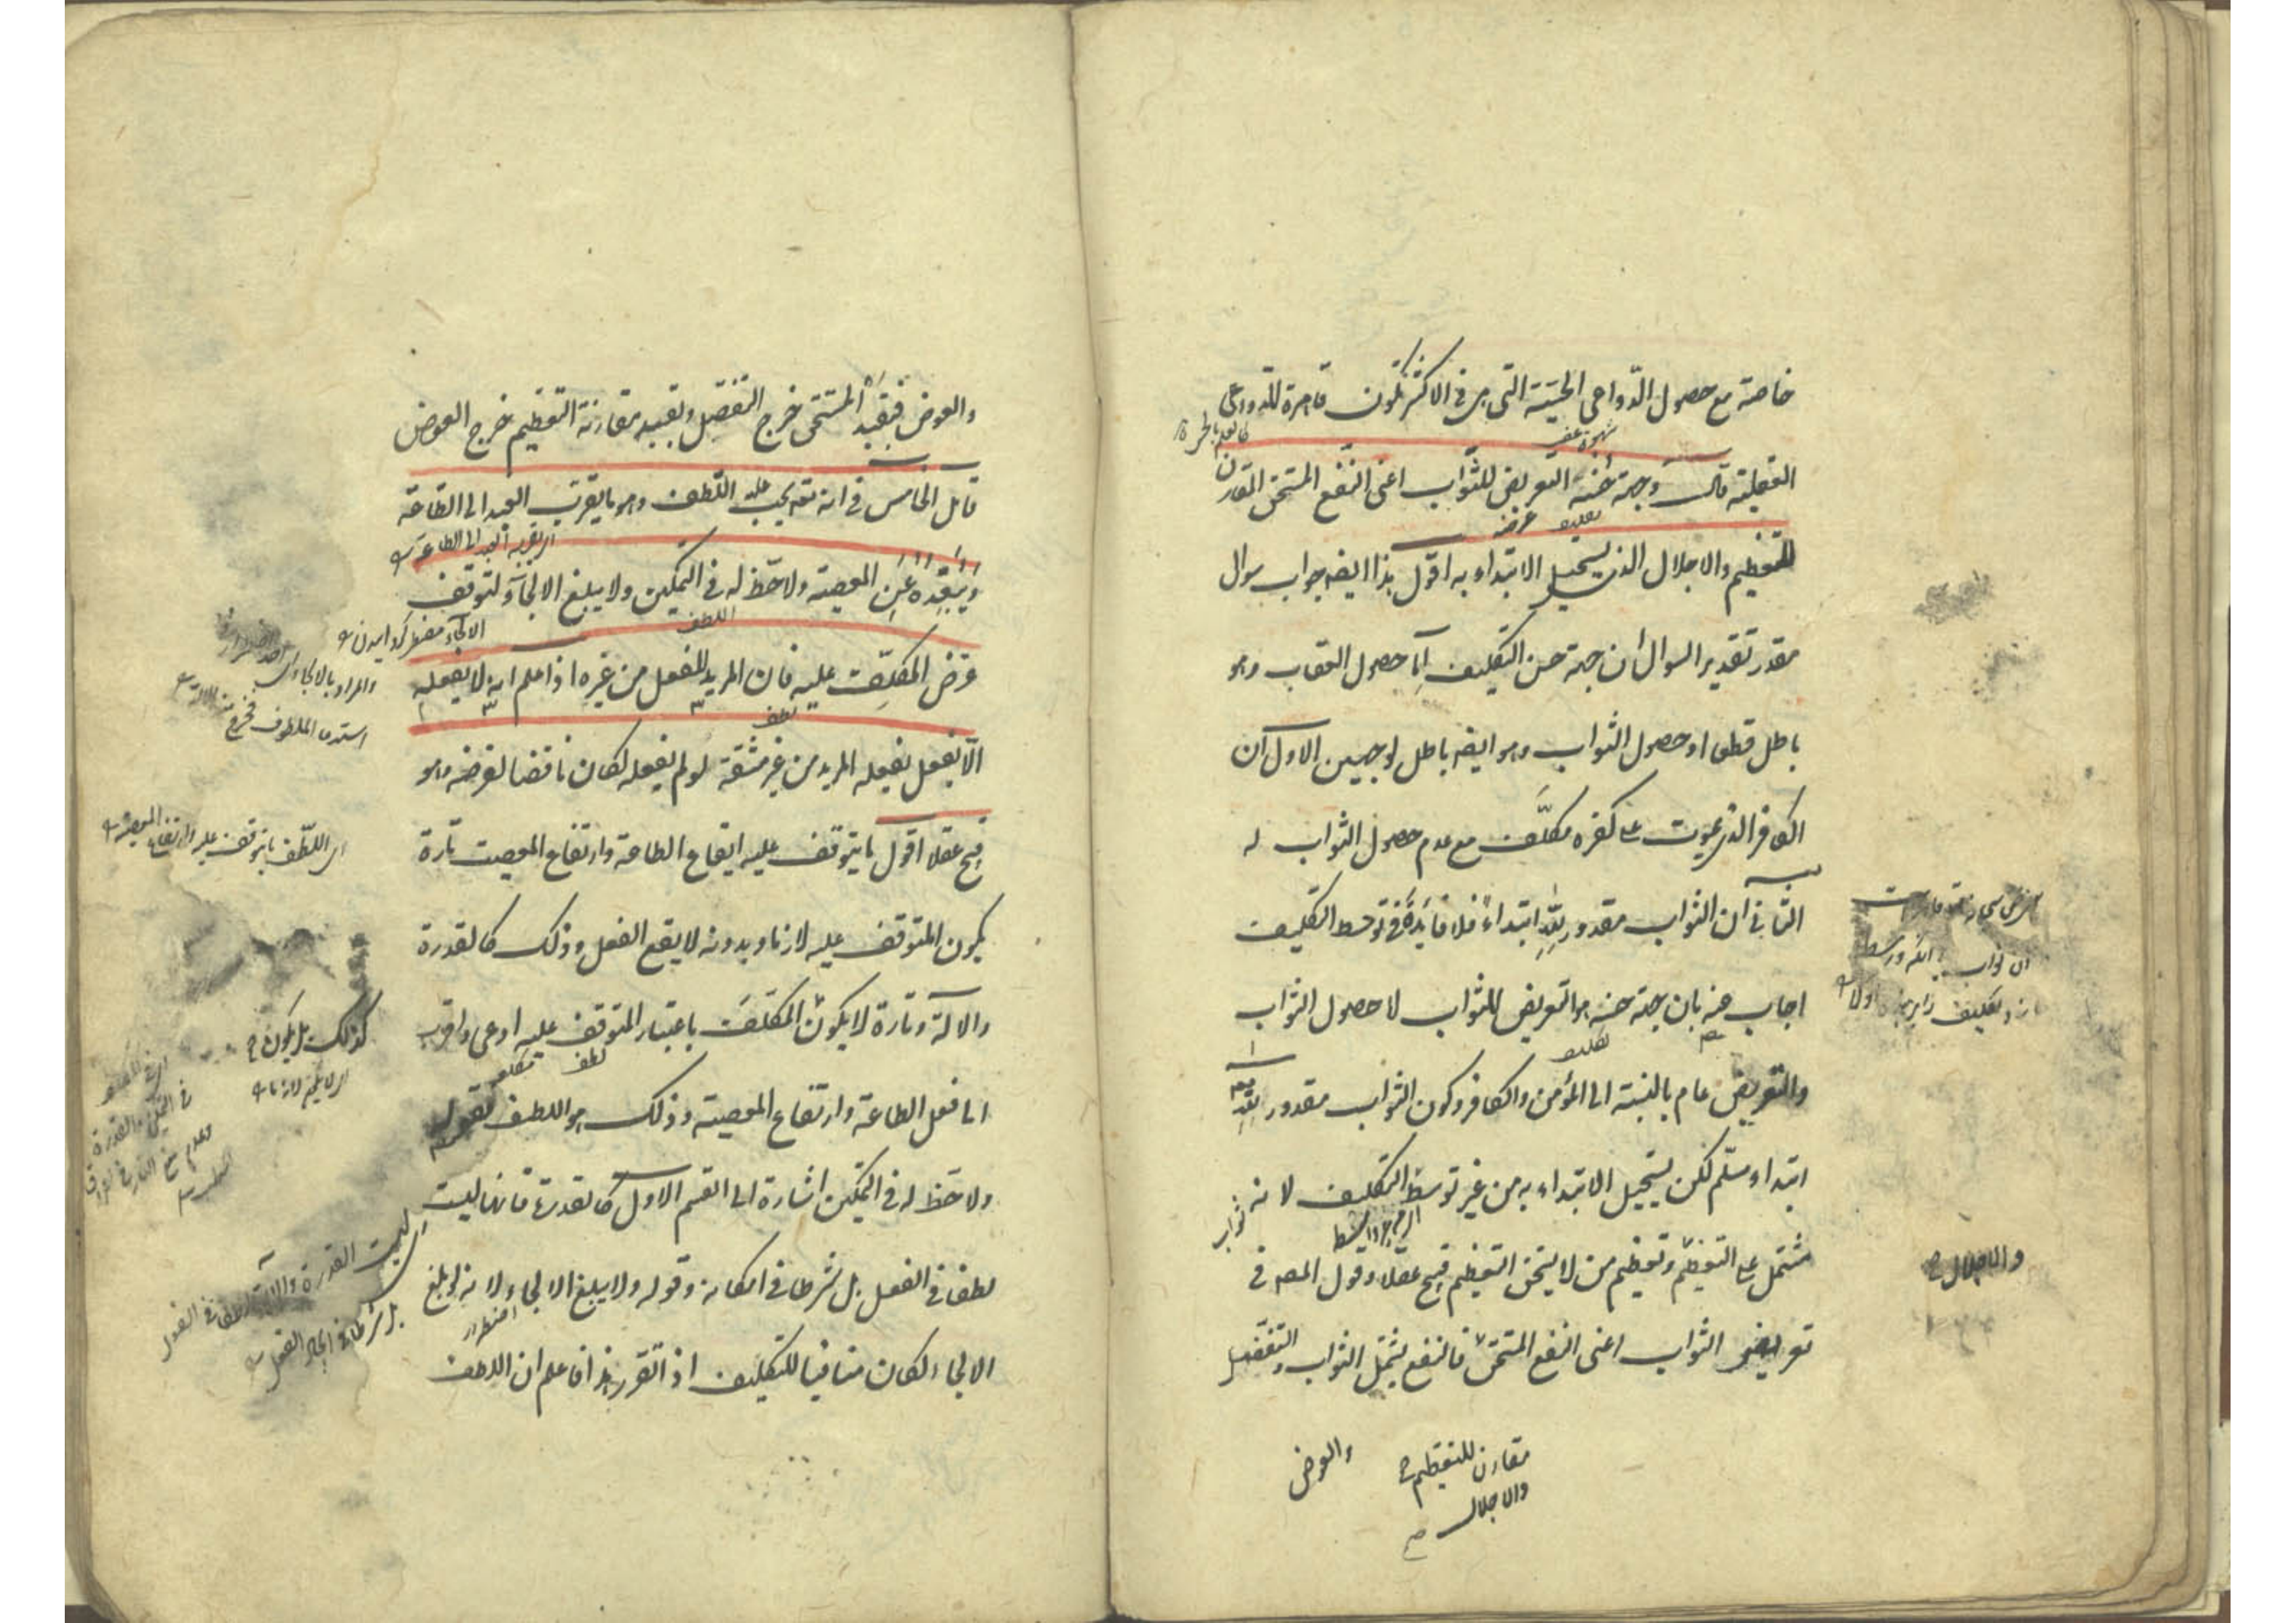 خاصة مع حصول الدواعى الحسية التى هى فى الاكثر تكون قاهرة للدواعى
العقلية قال وجهة حسنه التعريض للثواب اعنى النفع المستحق المقارن
للتعظيم والاجلال الذى يستحيل الابتداء به اقول هذا ايضه جواب سوال
مقدر تقدير السوال ان جهة حسن التكليف اما حصول العقاب وهو
باطل قطعا او حصول الثواب وهو ايضه باطل لوجهين الاول ان
الكافر الذى يموت على كفره مكلّف مع عدم حصول الثواب له
الثانى ان الثواب مقدور لله ابتداءً فلا فائدة فى توسط التكليف
اجاب عنه بان جهة حسنه هو التعريض للثواب لا حصول الثواب
والتعريض عام بالنسبة الى المؤمن والكافر وكون الثواب مقدور لله
ابتداء مسلّم لكن يستحيل الابتداء به من غير توسط التكليف لانه
مشتمل على التعظيم وتعظيم من لا يستحق التعظيم قبيح عقلا وقول المصه فى
تعريض الثواب اعنى النفع المستحق فالنفع يشمل الثواب والتفضل
والاجلال
مقارن للتعظيم
والاجلال
والعوض
والعوض فبقيد المستحق خرج التفضل وبقييد مقارنة التعظيم خرج العوض
قال الخامس فى انه تعه يجب عليه اللطف وهو ما يقرب العبد الى الطاعة
ويبعّده عن المعصية ولا حظ له فى التمكين ولا يبلغ الالجآء لتوقف
غرض المكلِّف عليه فان المريد للفعل من غيره اذا علم انه لا يفعله
الّا بفعل يفعله المريد من غير مشقة لو لم يفعله لكان ناقضا لغرضه وهو
قبيح عقلا اقول ما يتوقف عليه ايقاع الطاعة وارتفاع المعصيت تارة
يكون المتوقف عليه لازما وبدونه لا يقع الفعل وذلك كالقدرة
والالة وتارة لا يكون المكلَّف باعتبار المتوقف عليه ادعى واقرب
الى فعل الطاعة وارتفاع المعصية وذلك هو اللطف فقوله
ولا حظ له فى التمكين اشارة الى القسم الاول كالقدرة فانها ليست
لطفا فى الفعل بل شرطا فى امكانه وقوله ولا يبلغ الالجاء ولانه لو بلغ
الالجاء لكان منافيا للتكليف اذا تقرر هذا فاعلم ان اللطف
اى اللطف ما يتوقف عليه وارتفاع المعصية
كذلك بل يكون
بل شرطا فى ايجاد الفعل